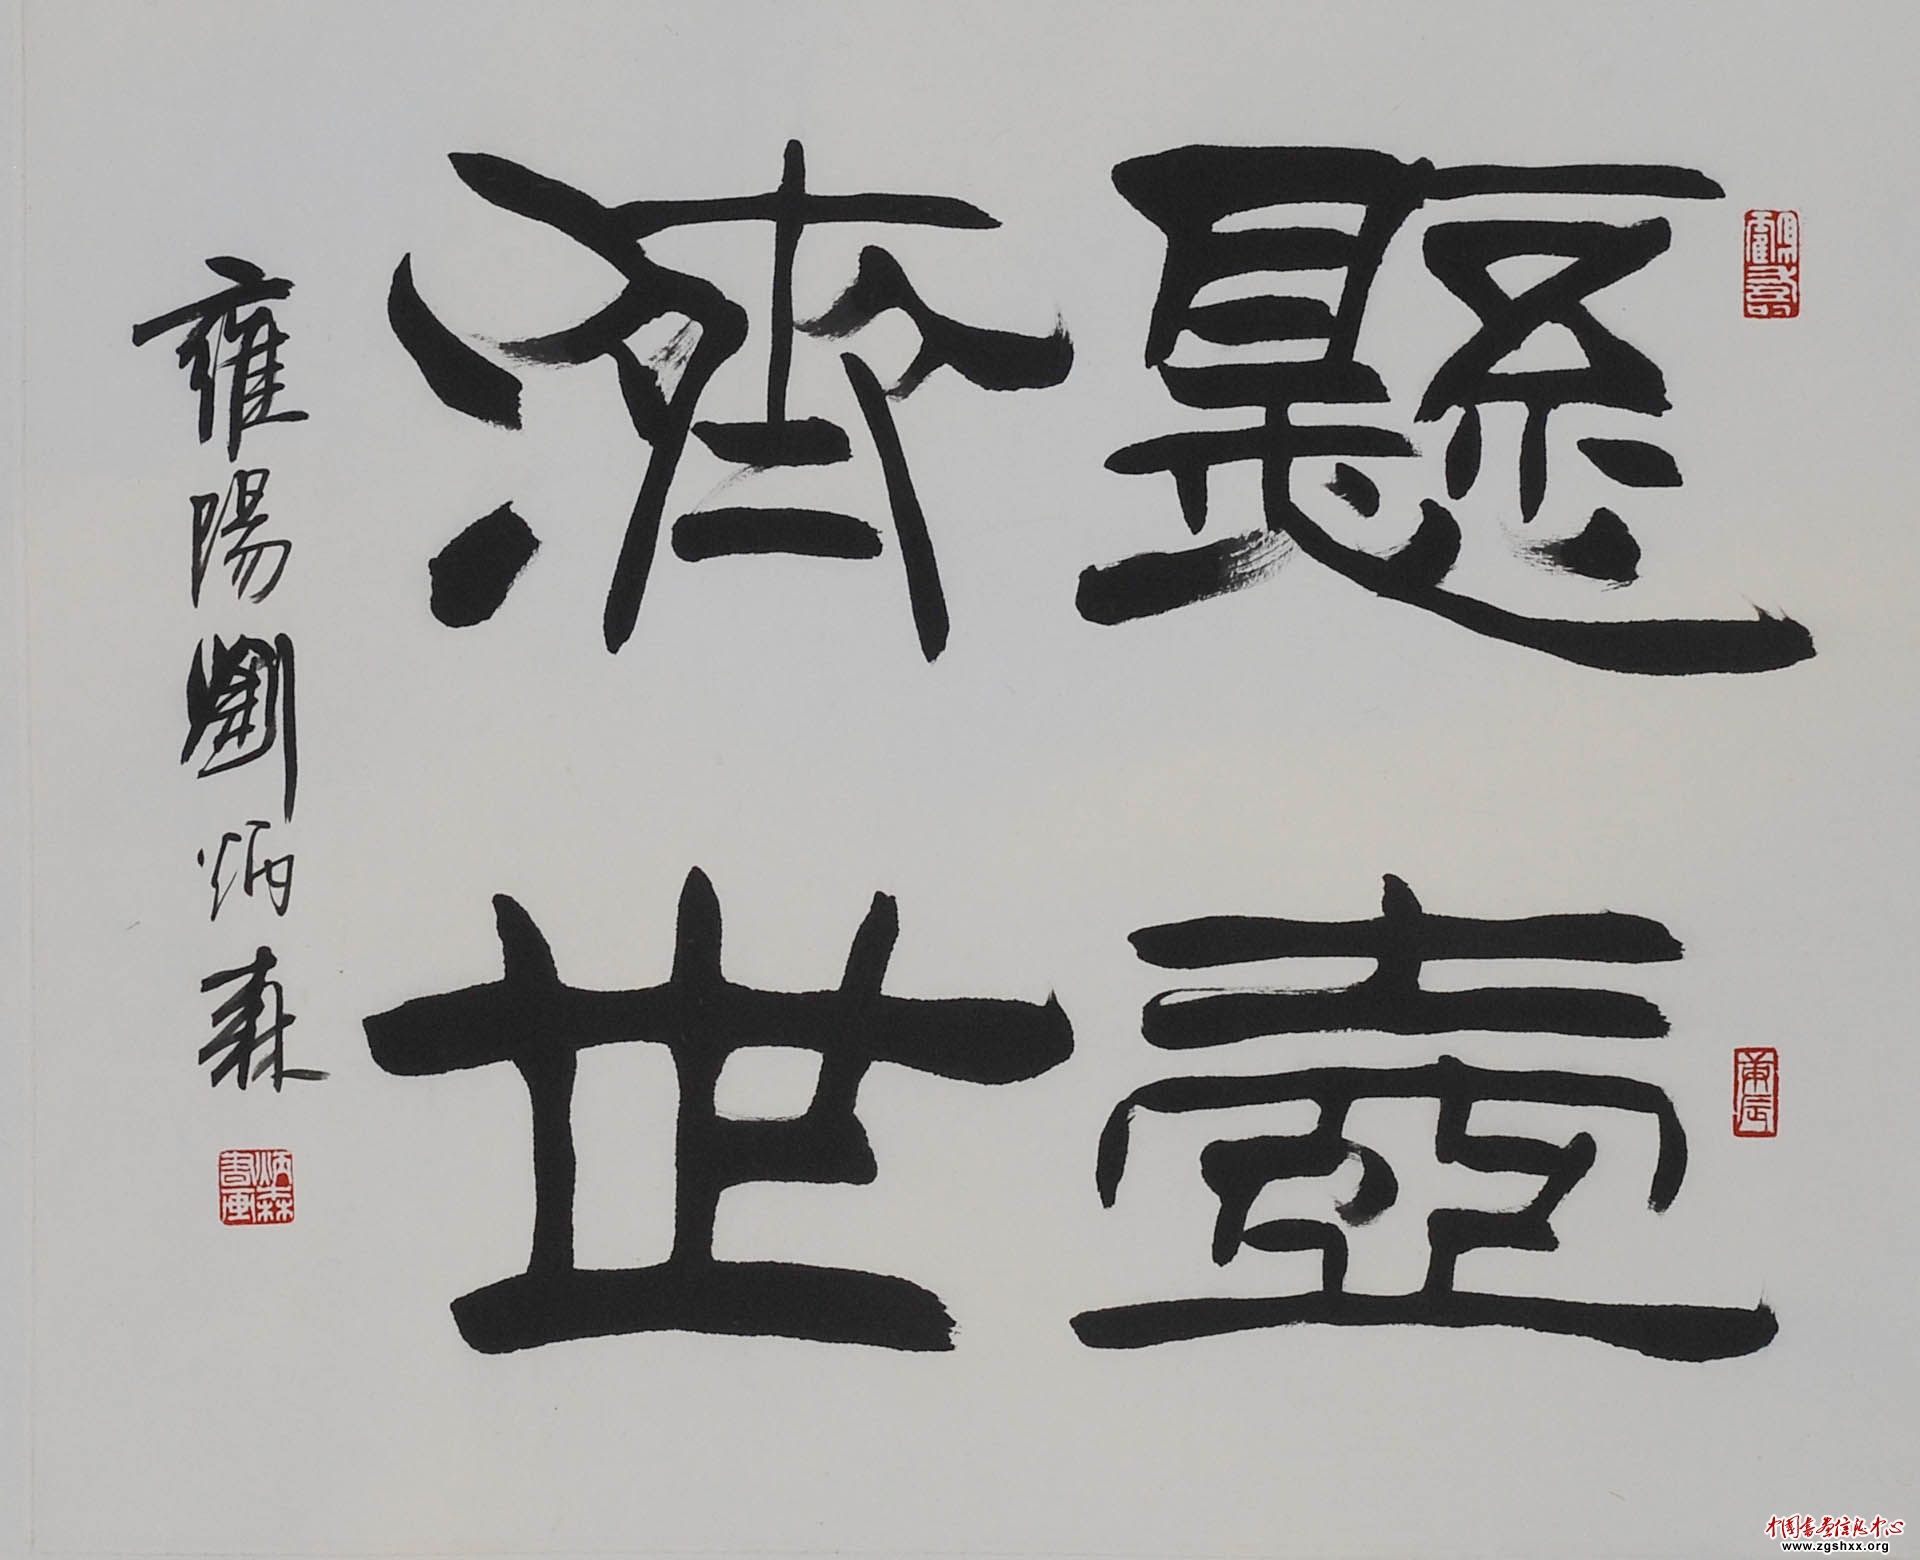 懸壺
濟世
雍陽劉炳森
庚辰
炳森書画
中国书画信息中心
www.zgshxx.org